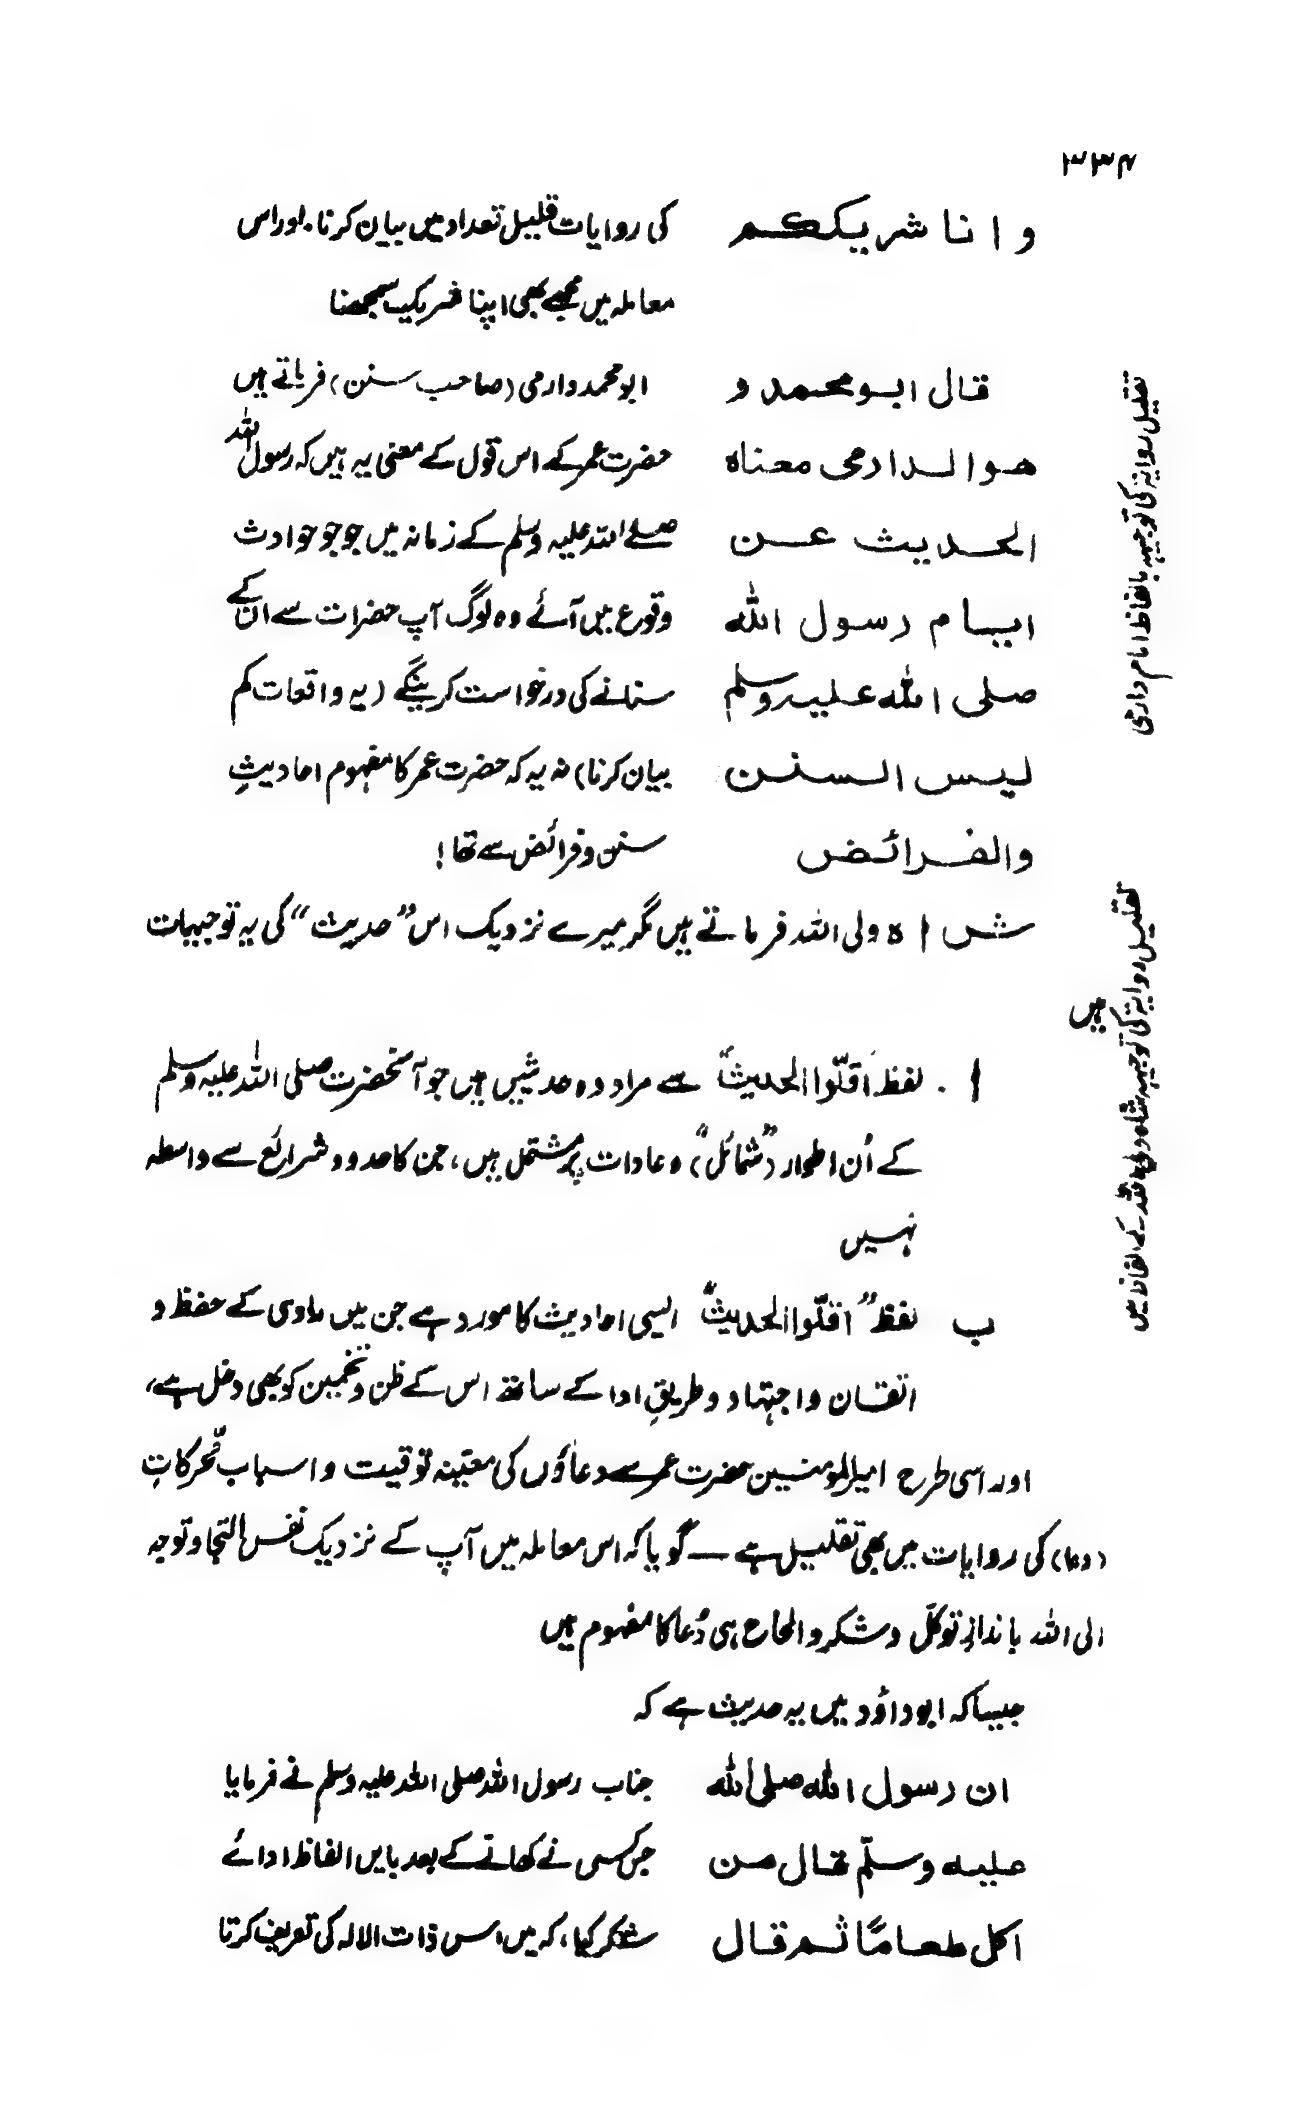 ۳۳۴
وانا شریککم
کی روایات قلیل تعداد میں بیان کرنا۔ اور اس
معاملہ میں مجھے بھی اپنا شریک سمجھنا
قال ابو محمد و
ابو محمد دارمی (صاحب سنن) فرماتے ہیں
ھو الدارمی معناہ
حضرت عمر کے اس قول کے معنی یہ ہیں کہ رسول اللہ
الحدیث عن
صلے اللہ علیہ وسلم کے زمانہ میں جو جو حوادث
ایام رسول اللہ
وقوع میں آئے وہ لوگ آپ حضرات سے ان کے
صلی اللہ علیہ وسلم
سنانے کی درخواست کرینگے (یہ واقعات کم
لیس السنن
بیان کرنا) نہ یہ کہ حضرت عمر کا مفہوم احادیثِ
والفرائض
سنن و فرائض سے تھا!
شاہ ولی اللہ فرماتے ہیں مگر میرے نزدیک اس "حدیث" کی یہ توجیہات
ہیں
ا ۔ لفظ "اقلّوا الحدیث" سے مراد وہ حدیثیں ہیں جو آنحضرت صلی اللہ علیہ وسلم
کے اُن اطوار ("شمائل") و عادات پر مشتمل ہیں، جن کا حدود شرائع سے واسطہ
نہیں
ب لفظ "اقلّوا الحدیث" ایسی احادیث کا مورد ہے جن میں راوی کے حفظ و
اتقان واجتہاد و طریقِ ادا کے ساتھ اس کے ظن و تخمین کو بھی دخل ہے،
اور اسی طرح امیرالمومنین حضرت عمر سے دعاؤں کی معیّنہ توقیت و اسباب محرّکاتِ
(دعا) کی روایات میں بھی تقلیل ہے — گویا کہ اس معاملہ میں آپ کے نزدیک نفس التجا و توجہ
الی اللہ باندازِ توکّل و شکر و الحاح ہی دُعا کا مفہوم ہیں
جیسا کہ ابو داؤد میں یہ حدیث ہے کہ
ان رسول اللہ صلی اللہ
جناب رسول اللہ صلی اللہ علیہ وسلم نے فرمایا
علیہ وسلّم قال من
جس کسی نے کھانے کے بعد بایں الفاظ ادائے
اکل طعامًا ثم قال
شکر کیا، کہ میں اس ذات الالہ کی تعریف کرتا
تقلیل روایۃ کی توجیہہ بالفاظ امام دارمی
تقلیل روایۃ کی توجیہہ شاہ ولی اللہ کے الفاظ میں